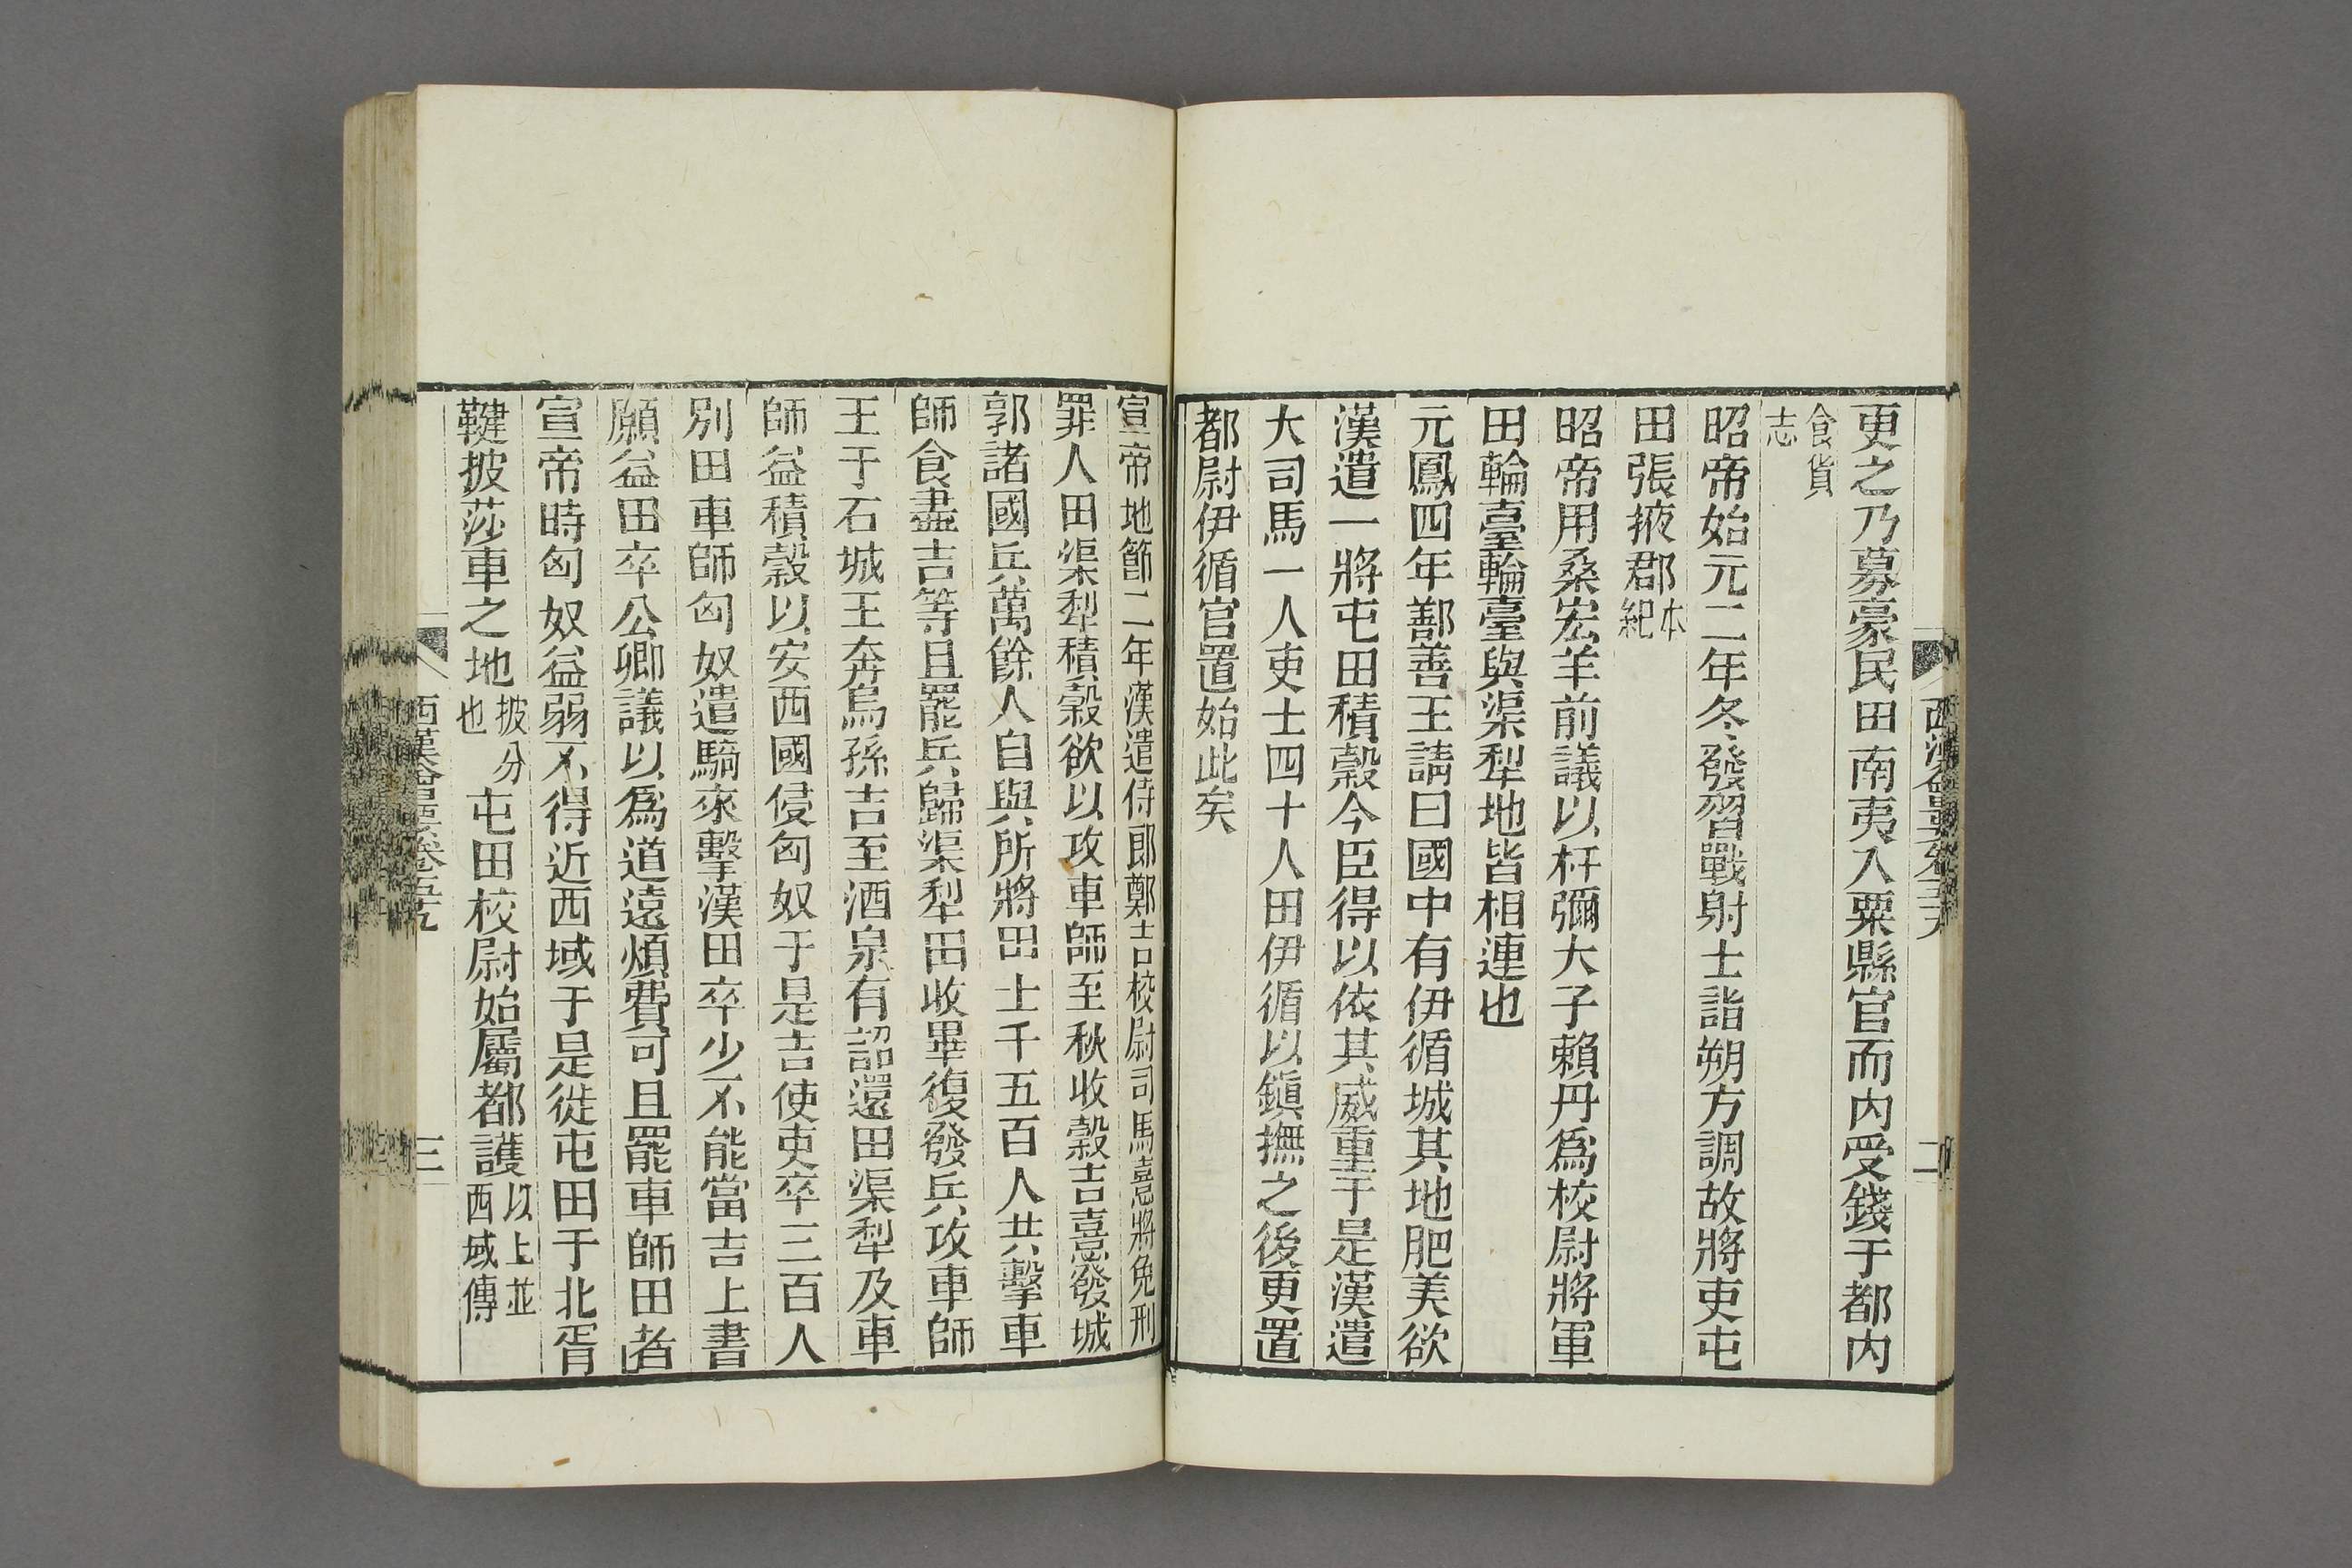 更之乃募豪民田南夷入粟縣官而内受錢于都内
食貨
志
昭帝始元二年冬發習戰射士詣朔方調故將吏屯
田張掖郡本
紀
昭帝用桑宏羊前議以杅彌大子賴丹爲校尉將軍
田輪臺輪臺與渠犁地皆相連也
元鳳四年鄯善王請曰國中有伊循城其地肥美欲
漢遣一將屯田積穀今臣得以依其威重于是漢遣
大司馬一人吏士四十人田伊循以鎭撫之後更置
都尉伊循官置始此矣
宣帝地節二年漢遣侍郎鄭吉校尉司馬憙將免刑
罪人田渠犁積穀欲以攻車師至秋收穀吉憙發城
郭諸國兵萬餘人自與所將田士千五百人共擊車
師食盡吉等且罷兵歸渠犁田收畢復發兵攻車師
王于石城王奔烏孫吉至酒泉有詔還田渠犁及車
師益積穀以安西國侵匈奴于是吉使吏卒三百人
別田車師匈奴遣騎來擊漢田卒少不能當吉上書
願益田卒公卿議以爲道遠煩費可且罷車師田者
宣帝時匈奴益弱不得近西域于是徙屯田于北胥
鞬披莎車之地披分
也屯田校尉始屬都護以上並
西域傳
三